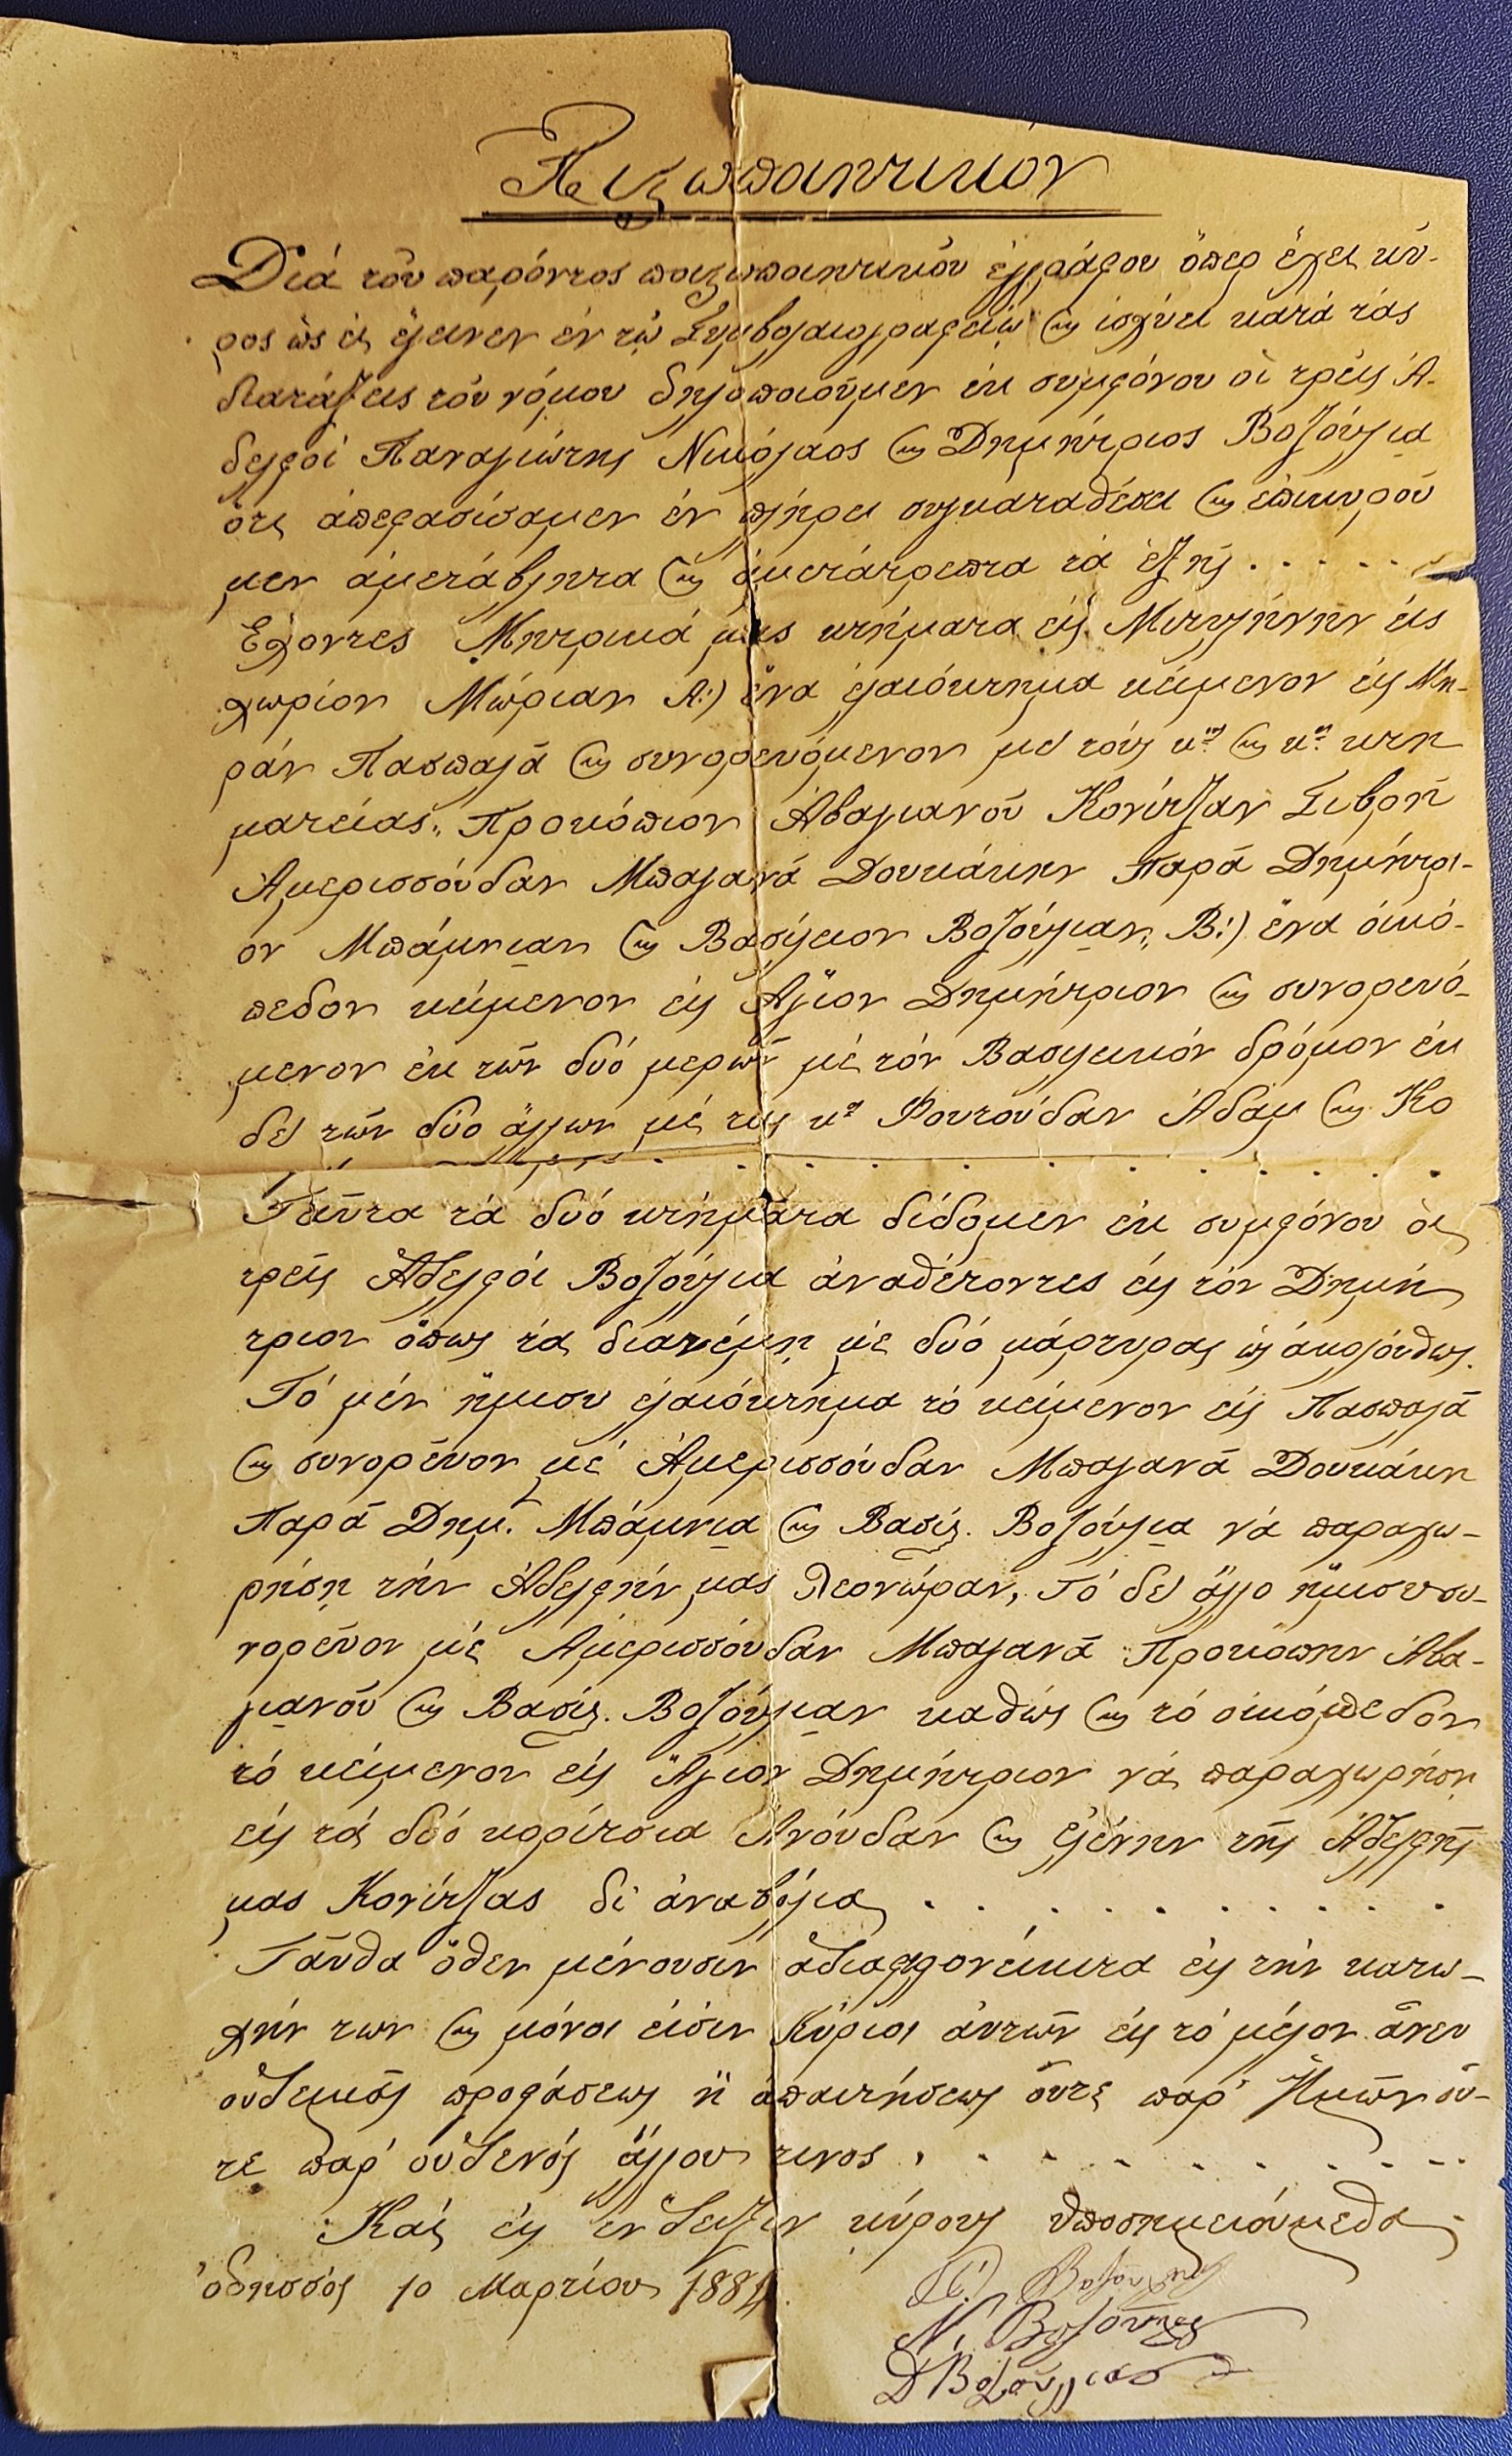 Πληρωπαικτικόν
Διά τοῦ παρόντος ἐγγράφου ὅπερ ἔχει κῦ-
ρος ὡς εἰ ἔγεινεν ἐν τῷ Συμβολαιογραφείῳ καὶ ἰσχύει κατά τάς
διατάξεις τοῦ νόμου δηλοποιοῦμεν ἐκ συμφόνου οἱ τρεῖς Ἀ-
δελφοί Παναγιώτης Νικόλαος καὶ Δημήτριος Βοζούλια
ὅτι ἀπεφασίσαμεν ἐν πλήρει συγκαταθέσει καὶ ἐπικυροῦ
μεν ἀμετάβλητα καὶ ἀμετάτρεπτα τά ἑξῆς . . . . .
Ἔχοντες Μητρικά μας κτήματα εἰς Μιτυλήνην εἰς
χωρίον Μώριαν Α:) ἕνα ἐλαιόκτημα κείμενον εἰς Μη-
ράν Πασπαλᾶ καὶ συνορευόμενον μέ τούς κ<sup>ους</sup> καὶ κ<sup>ας</sup> κτη
ματείας „ Προκόπιον Ἀβαγιανοῦ Κονίτζαν Σεβρῆ
Ἀμερισσούδαν Μπαλανᾶ Δουκάκην Παρᾶ Δημήτρι-
ον Μπάμνιαν καὶ Βασίλειον Βοζούλιαν „ Β:) ἕνα οἰκό-
πεδον κείμενον εἰς Ἅγιον Δημήτριον καὶ συνορευό-
μενον ἐκ τῶν δύο μερῶν μέ τόν Βασιλικόν δρόμον ἐκ
δέ τῶν δύο ἄλλων μέ τάς κ<sup>ας</sup> Φουτούδαν Ἀδάμ καὶ Κο
. . . . . . . . . .
Ταῦτα τά δύο κτήματα δίδομεν ἐκ συμφόνου οἱ
τρεῖς Ἀδελφοί Βοζούλια ἀναθέτοντες εἰς τόν Δημή
τριον ὅπως τά διανέμῃ μέ δύο μάρτυρας ὡς ἀκολούθως.
Τό μέν ἥμισυ ἐλαιόκτημα τό κείμενον εἰς Πασπαλᾶ
καὶ συνορεῦον μέ Ἀμερισσούδαν Μπαλανᾶ Δουκάκη
Παρᾶ Δημ. Μπάμνια καὶ Βασίλ. Βοζούλια νά παραχω-
ρήσῃ τήν Ἀδελφήν μας Λεονώραν, Τό δέ ἄλλο ἥμισυ συ-
νορεῦον μέ Ἀμερισσούδαν Μπαλανᾶ Προκόπην Ἀβα-
γιανοῦ καὶ Βασίλ. Βοζούλιαν καθώς καὶ τό οἰκόπεδον
τό κείμενον εἰς Ἅγιον Δημήτριον νά παραχωρήσῃ
εἰς τά δύο κορίτσια Ἀνούδαν καὶ Ἑλένην τῆς Ἀδελφῆς
μας Κονίτζας δι' ἀναβόλια . . . . . . . . . .
Ταῦθα ὅθεν μένουσιν ἀδιαφφονείκιτα εἰς τήν κατω-
χήν των καὶ μόνοι εἰσίν Κύριοι ἀυτῶν εἰς τό μέλον ἄνευ
οὐδεμιᾶς προφάσεως ἤ ἀπαιτήσεως οὔτε παρ' Ἡμῶν οὔ-
τε παρ' οὐδενός ἄλλου τινος . . . . . . . . . .
Καί εἰς ἔνδειξιν κύρους ὑποσημειούμεθα.
Ὀδησσός 10 Μαρτίου 188
Ν. Βοζούλιας
Δ Βοζούλλιασ